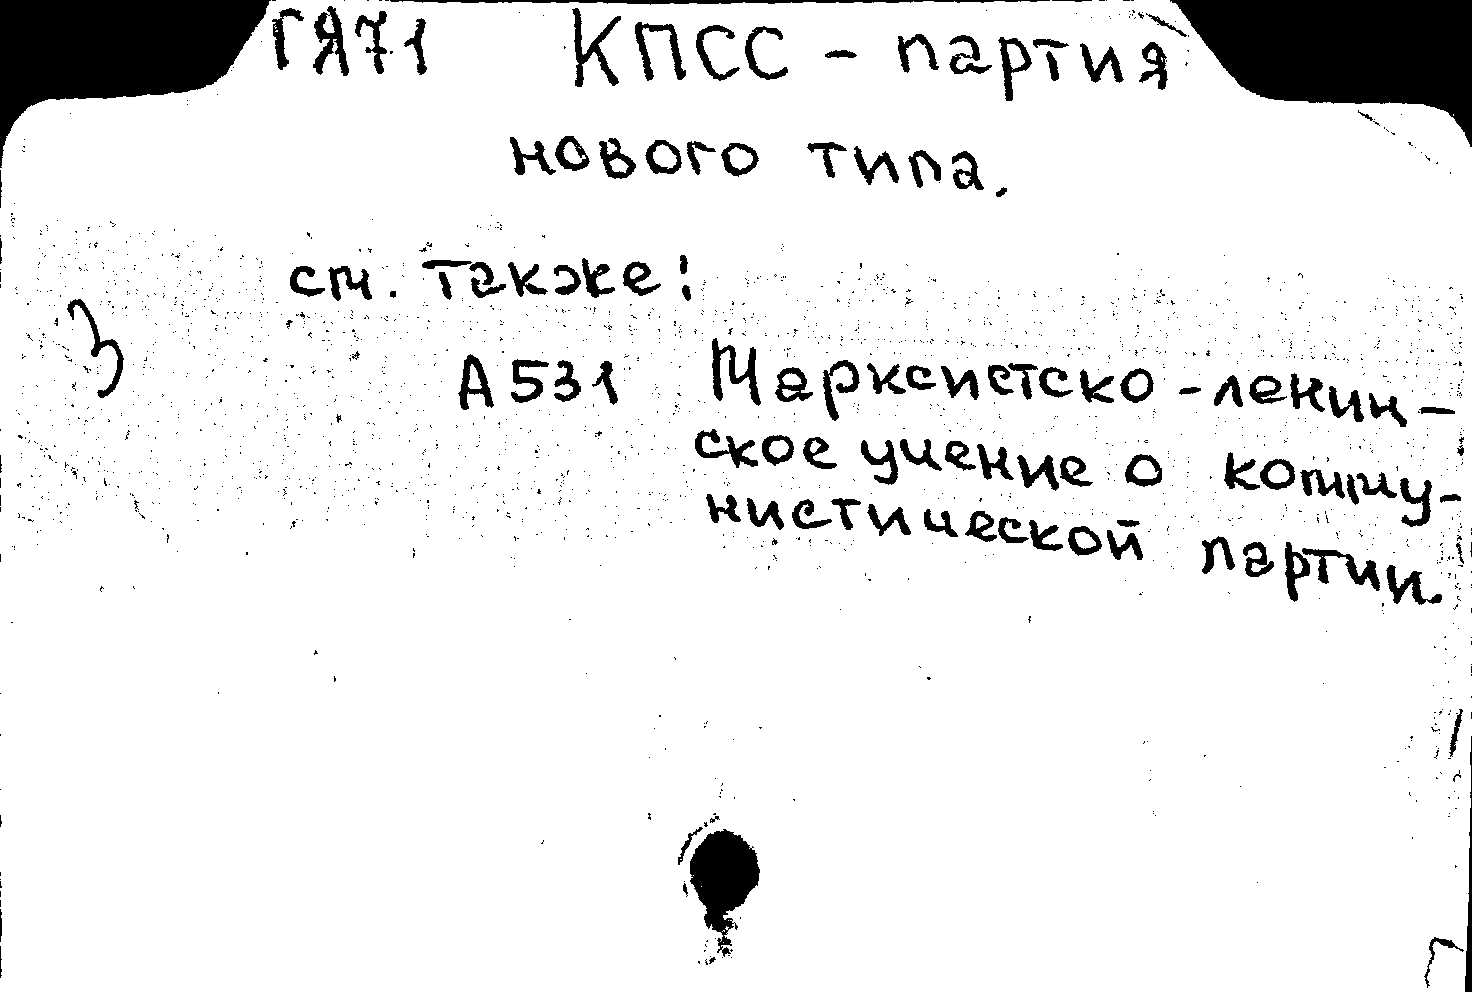 ГЯ71 КПСС - партия
нового типа.
см. также:
3
А531 Марксистско-ленин-
ское учение о комму-
нистической партии.